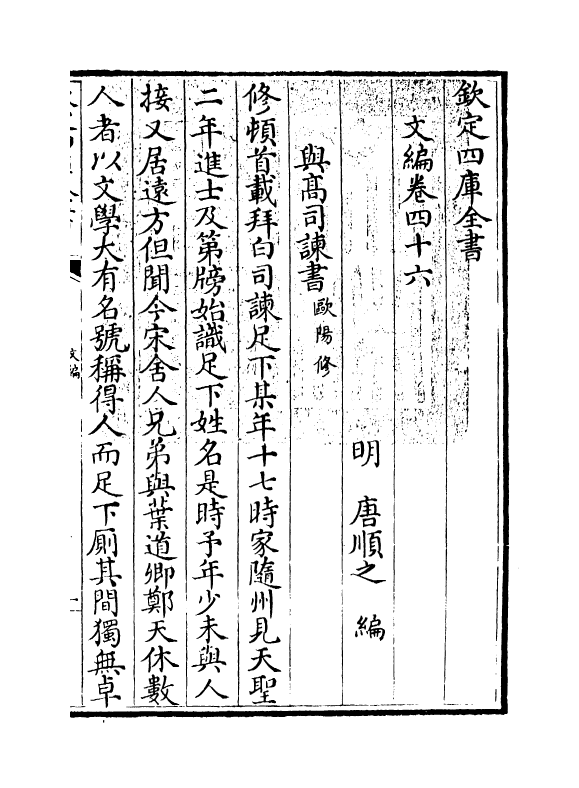 欽定四庫全書
文編卷四十六
明 唐順之 編
與髙司諫書 歐陽修
修頓首載拜白司諫足下某年十七時家隨州見天聖
二年進士及第牓始識足下姓名是時予年少未與人
接又居逺方但聞今宋舍人兄弟與葉道卿鄭天休數
人者以文學大有名號稱得人而足下厠其間獨無卓
文編